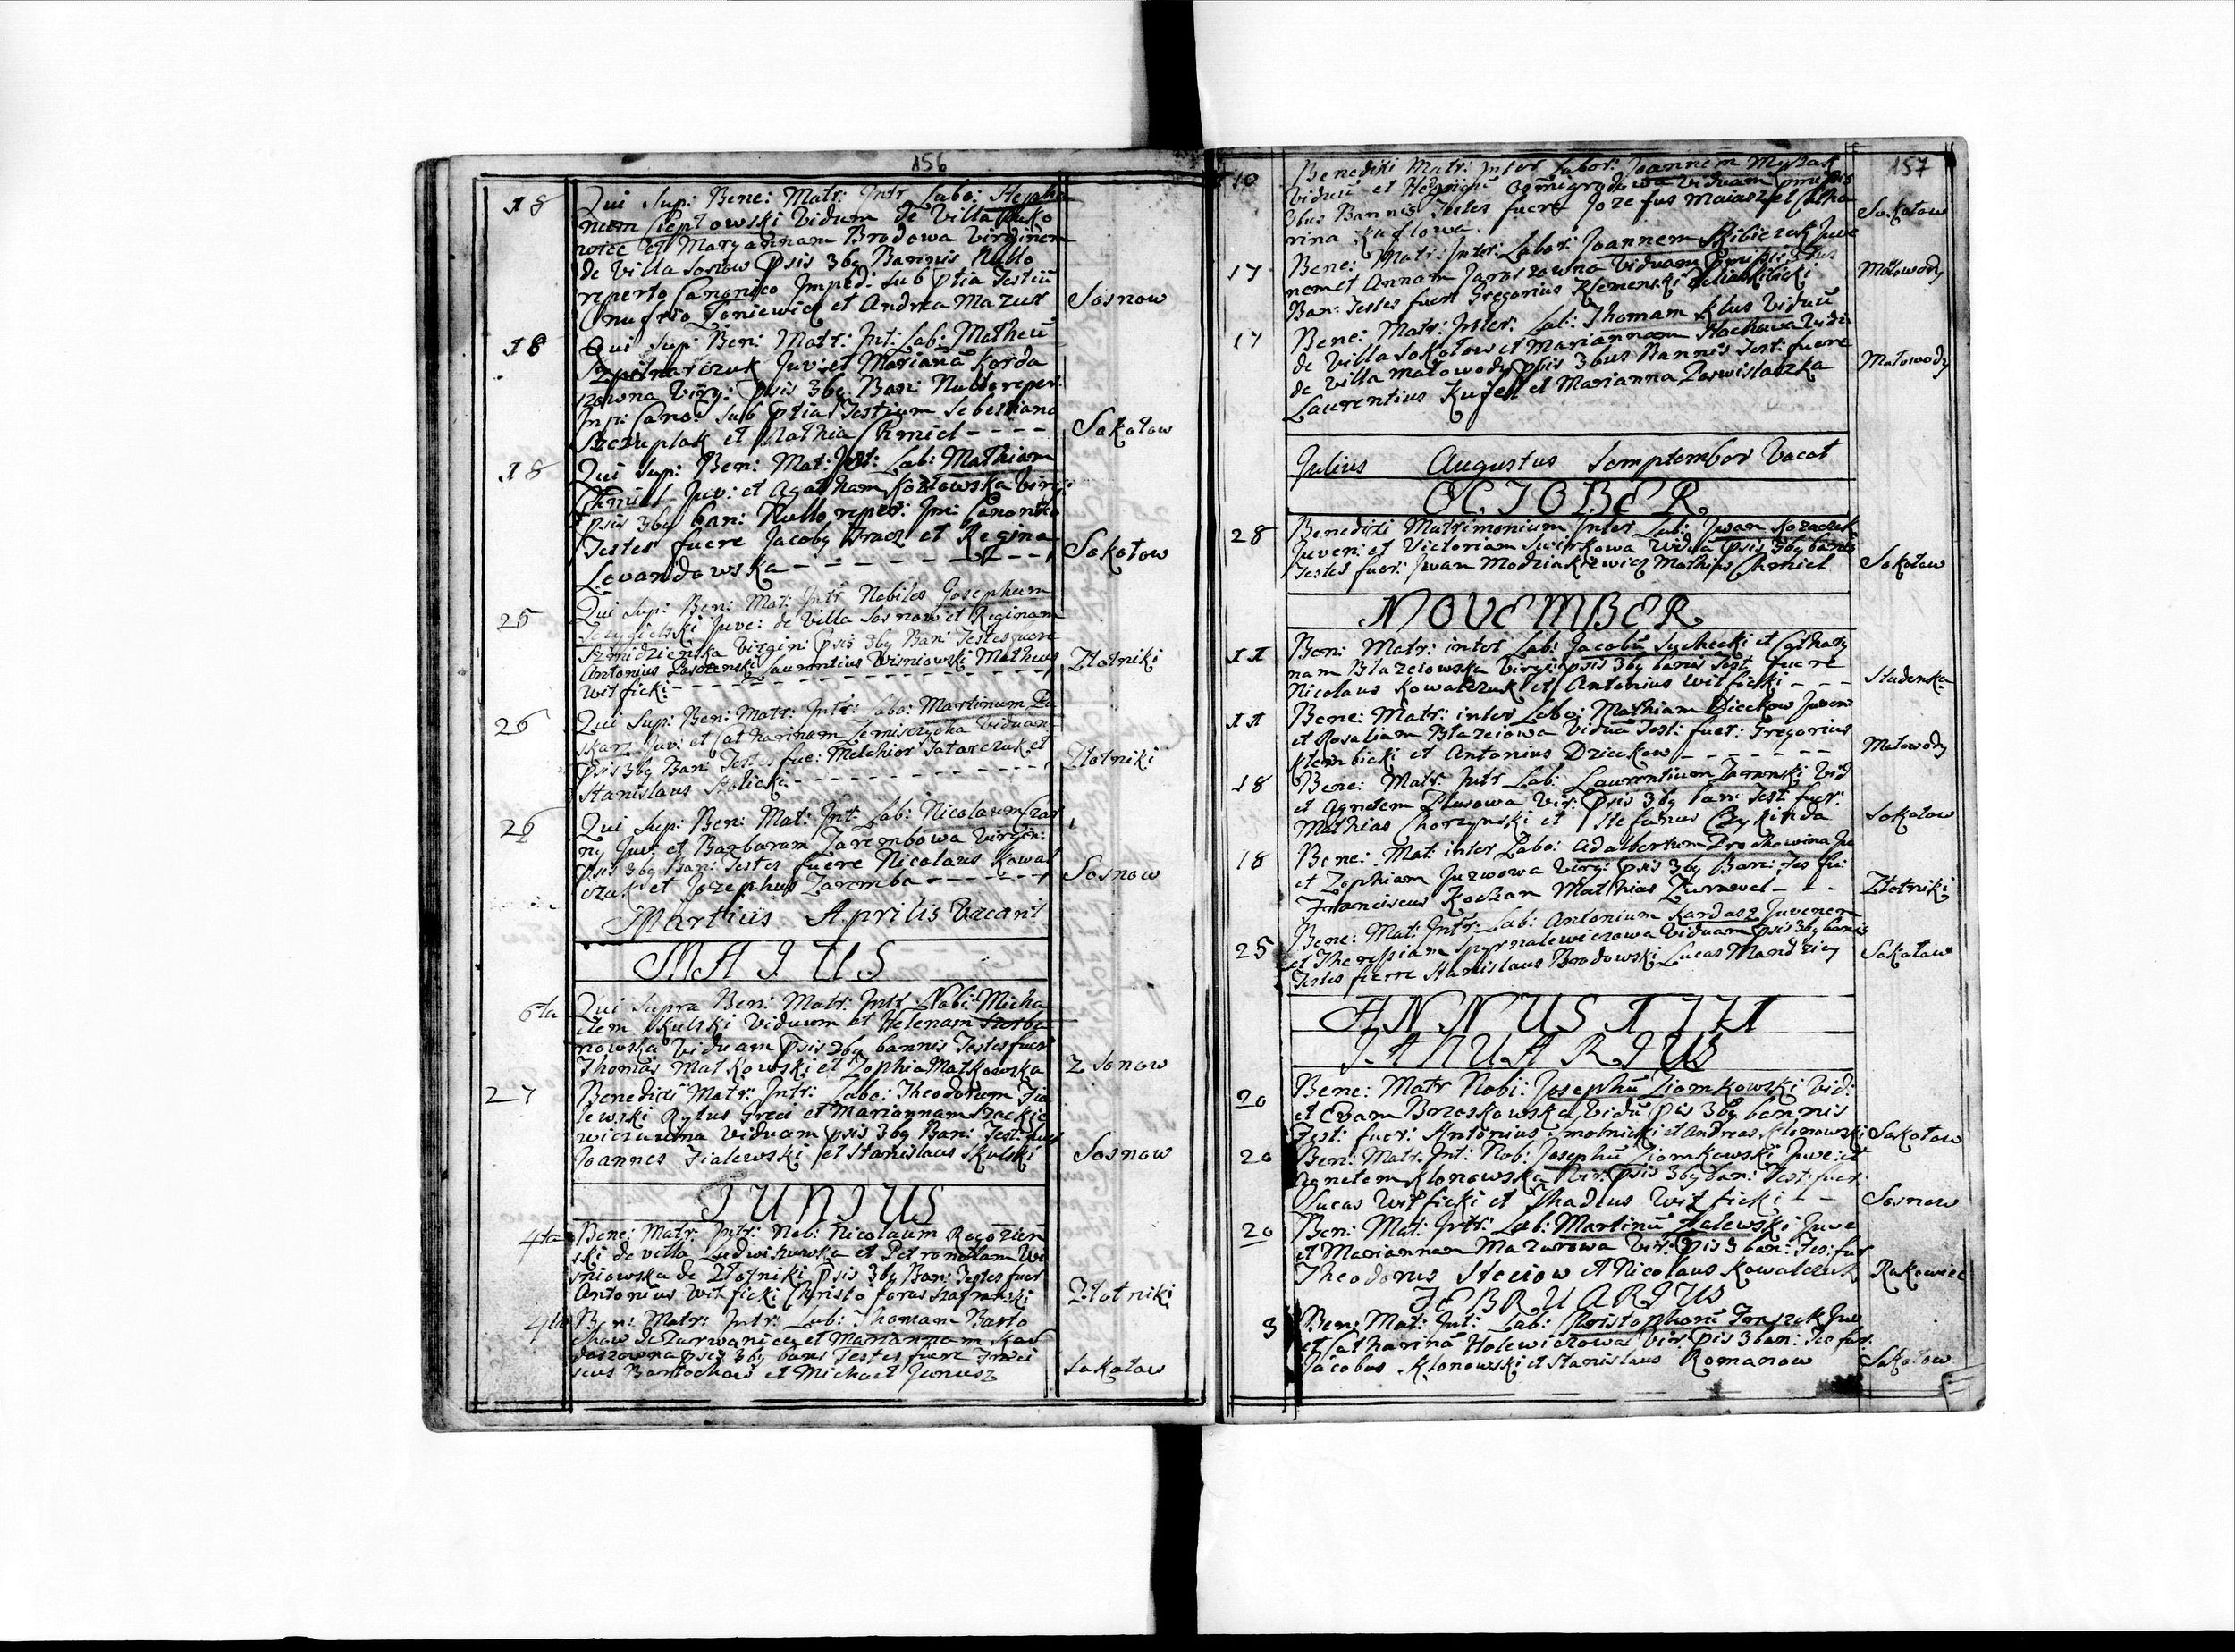 156
18
Qui Sup: Bene: Matr: Intr Labo: Stepha
num Cieplowski Viduum de Villa Rako
wiec et Maryannam Brodowa Virginem
de Villa Sosnow Psis 3bq Bannis Nullo
reperto Canonico Imped: Sub Ptia Testiu
Onufrio Zoniewicz et Andrea Mazur
Sosnow
18
Qui Sup: Ben: Matr: Int: Lab: Matheu
Juv: et Marianā Korda
szowna Virg: Psis 3bq Ban: Nullo reper:
Im: Cano: Sub Ptia Testium Sebestiano
Szczuplak et Mathia Chmiel
Sokołow
18
Qui Sup: Ben: Mat: Int: Lab: Mathiam
Chmiel Juv: et Agatham Kozlowska Virg:
Psis 3bq ban: Nullo reper: Im: Canonico
Testes fuere Jacobq Tracz et Regina
Levandowska
Sokołow
25
Qui Sup: Ben: Mat: Intr Nobiles Josephum
Juve: de Villa Sosnow et Reginam
Szmidzienska Virgin: Psis 3bq Ban: Testes fuere
Antonius Laurentius Wisniowski Matheus
Witficki
Złotniki
26
Qui Sup: Ben: Matr: Intr: Labo: Martinum Pa
skar Juv: et Catharinam Lemiszycha Viduam
Psis 3bq Ban: Testes fue: Melchior Tatarczuk et
Stanislaus Stolicki
Złotniki
26
Qui Sup: Ben: Mat: Int: Lab: Nicolaum Czar
ny Juv: et Barbaram Zarembowa Virgin:
Psis 3bq Ban: Testes fuere Nicolaus Kowal
czuk et Jozephus Zaremba
Sosnow
Martius Aprilis Vacant
MAIUS
6ta
Qui Supra Ben: Matr: Intr Nobi: Micha
elem Skulski Viduum et Helenam Szorba
nowska Viduam Psis 3bq bannis Testes fuer
Thomas Matkowski et Zophia Matkowska
Zsonow
27
Benedixi Matr: Intr: Labo: Theodorum Fia
lewski Rytus Greci et Mariannam Szackie
wiczuwna Viduam Psis 3bq Ban: Test: fuer
Joannes Fialewski et Stanislaus Skulski
Sosnow
JUNIUS
4ta
Bene: Matr: Intr: Nob: Nicolaum Rogozien
ski de villa Ludwikuwka et Petronellam Wi
sniowska de Złotniki Psis 3bq Ban: Testes fuer
Antonius Witficki Christoforus Szafranski
Złotniki
4ta
Ben: Matr: Intr: Lab: Thomam Barto
chow de Zarwanica et Mariannam Kar
daszowna Psis 3bq bans Testes fuere Franci
scus Bartochow et Michael Junusz
Sokołow
157
10
Benedixi Matr: Inter Labor: Joannem Myszak
Viduu et Hedvigu Viduam Pmissis
3bus Bannis Testes fuere Jozefus Maiasz et Catha
rina Kuflowa
Sokołow
17
Bene: Matr: Intr: Labor: Joannem Skibiczuk Juve
nem et Annam Jaroszowna Viduam Pmissis 3bus
Ban: Testes fuer Gregorius Klemenski
Małowody
17
Bene: Matr: Inter: Lab: Thomam Klus Viduu
de Villa Sokołow et Mariannam Stochowa Vidu
de Villa Małowody Psis 3bus Bannis Test: fuere
Laurentius Kufel et Marianna Zaswistaczka
Małowody
Julius Augustus Semptember Vacat
OCTOBER
28
Benedixi Matrimonium Inter Lab: Jwan Kozaczuk
Juven: et Victoriam Swirkowa Viduā Psis 3bq banis
Testes fuer: Jwan Modziakiewicz Mathias Chmiel
Sokołow
NOVEMBER
11
Ben: Matr: inter Lab: Jacobu Suchecki et Cathary
nam Blazeiowska Virgi: Psis 3bq banis Test fuere
Nicolaus Kowalczuk et Antonius Witficki
Studenka
11
Bene: Matr: inter Labo: Mathiam Dieckow Juven
et Rosaliam Blazeiowa Vidua Test: fuer: Gregorius
Stembicki et Antonius Dzieckow
Małowody
18
Bene: Matr: Intr Lab: Laurentium Zaremski Vid
et Agnetem Plusowa Vir: Psis 3bq ban: Test: fuer:
Mathias Chorzynski et Stefanus Czykinda
Sokołow
18
Bene: Mat: inter Labo: Adalbertum Prochowina Ju
et Zophiam Juzwowa Virg: Psis 3bq Ban: Tes fu:
Franciscus Koczan Mathias Zurawel
Złotniki
25
Bene: Mat: Intr: Lab: Antonium Kardasz Juvenem
et Theressiam Spyrnalewiczowa Viduam Psis 3bq banis
Testes fuere Stanislaus Brodowski Lucas Mandziey
Sokołow
ANNUS 1771
JANUARIUS
20
Bene: Matr Nobi: Josephu Ziomkowski Vid:
et Evam Brzoskowska Vidu Psis 3bq bannis
Test: fuer: Antonius Smolnicki et Andreas Klonowski
Sokołow
20
Ben: Matr: Int: Nob: Josephu Ziomkowski Juve: et
Agnetem Klonowska Vir: Psis 3bq ban: Test: fuer:
Lucas Witficki et Thadeus Witficki
Sosnow
20
Ben: Mat: Intr: Lab: Martinu Zalewski Juve
et Mariannam Mazurowa Vir: Psis 3 ban: Tes: fue
Theodorus Steciow et Nicolaus Kowalczuk
Rakowiec
FEBRUARIUS
3
Ben: Mat: Int: Lab: Christophoru Juv
et Catharinā Holewiczowa Vir: Psis 3 ban: Tes fue:
Jacobus Klonowski et Stanislaus Romanow
Sokołow